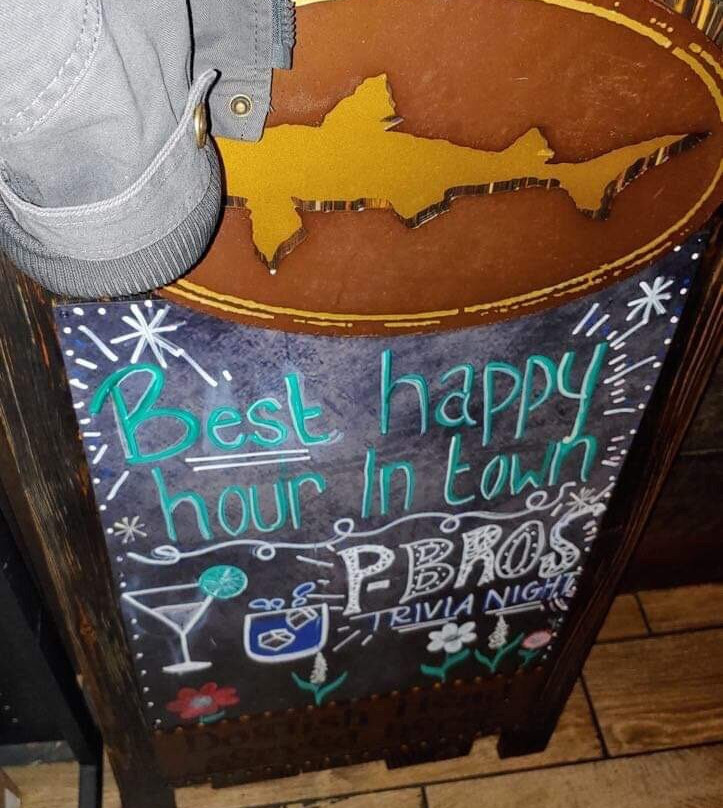 Best happy
hour In town
P-BROS
TRIVIA NIGHT